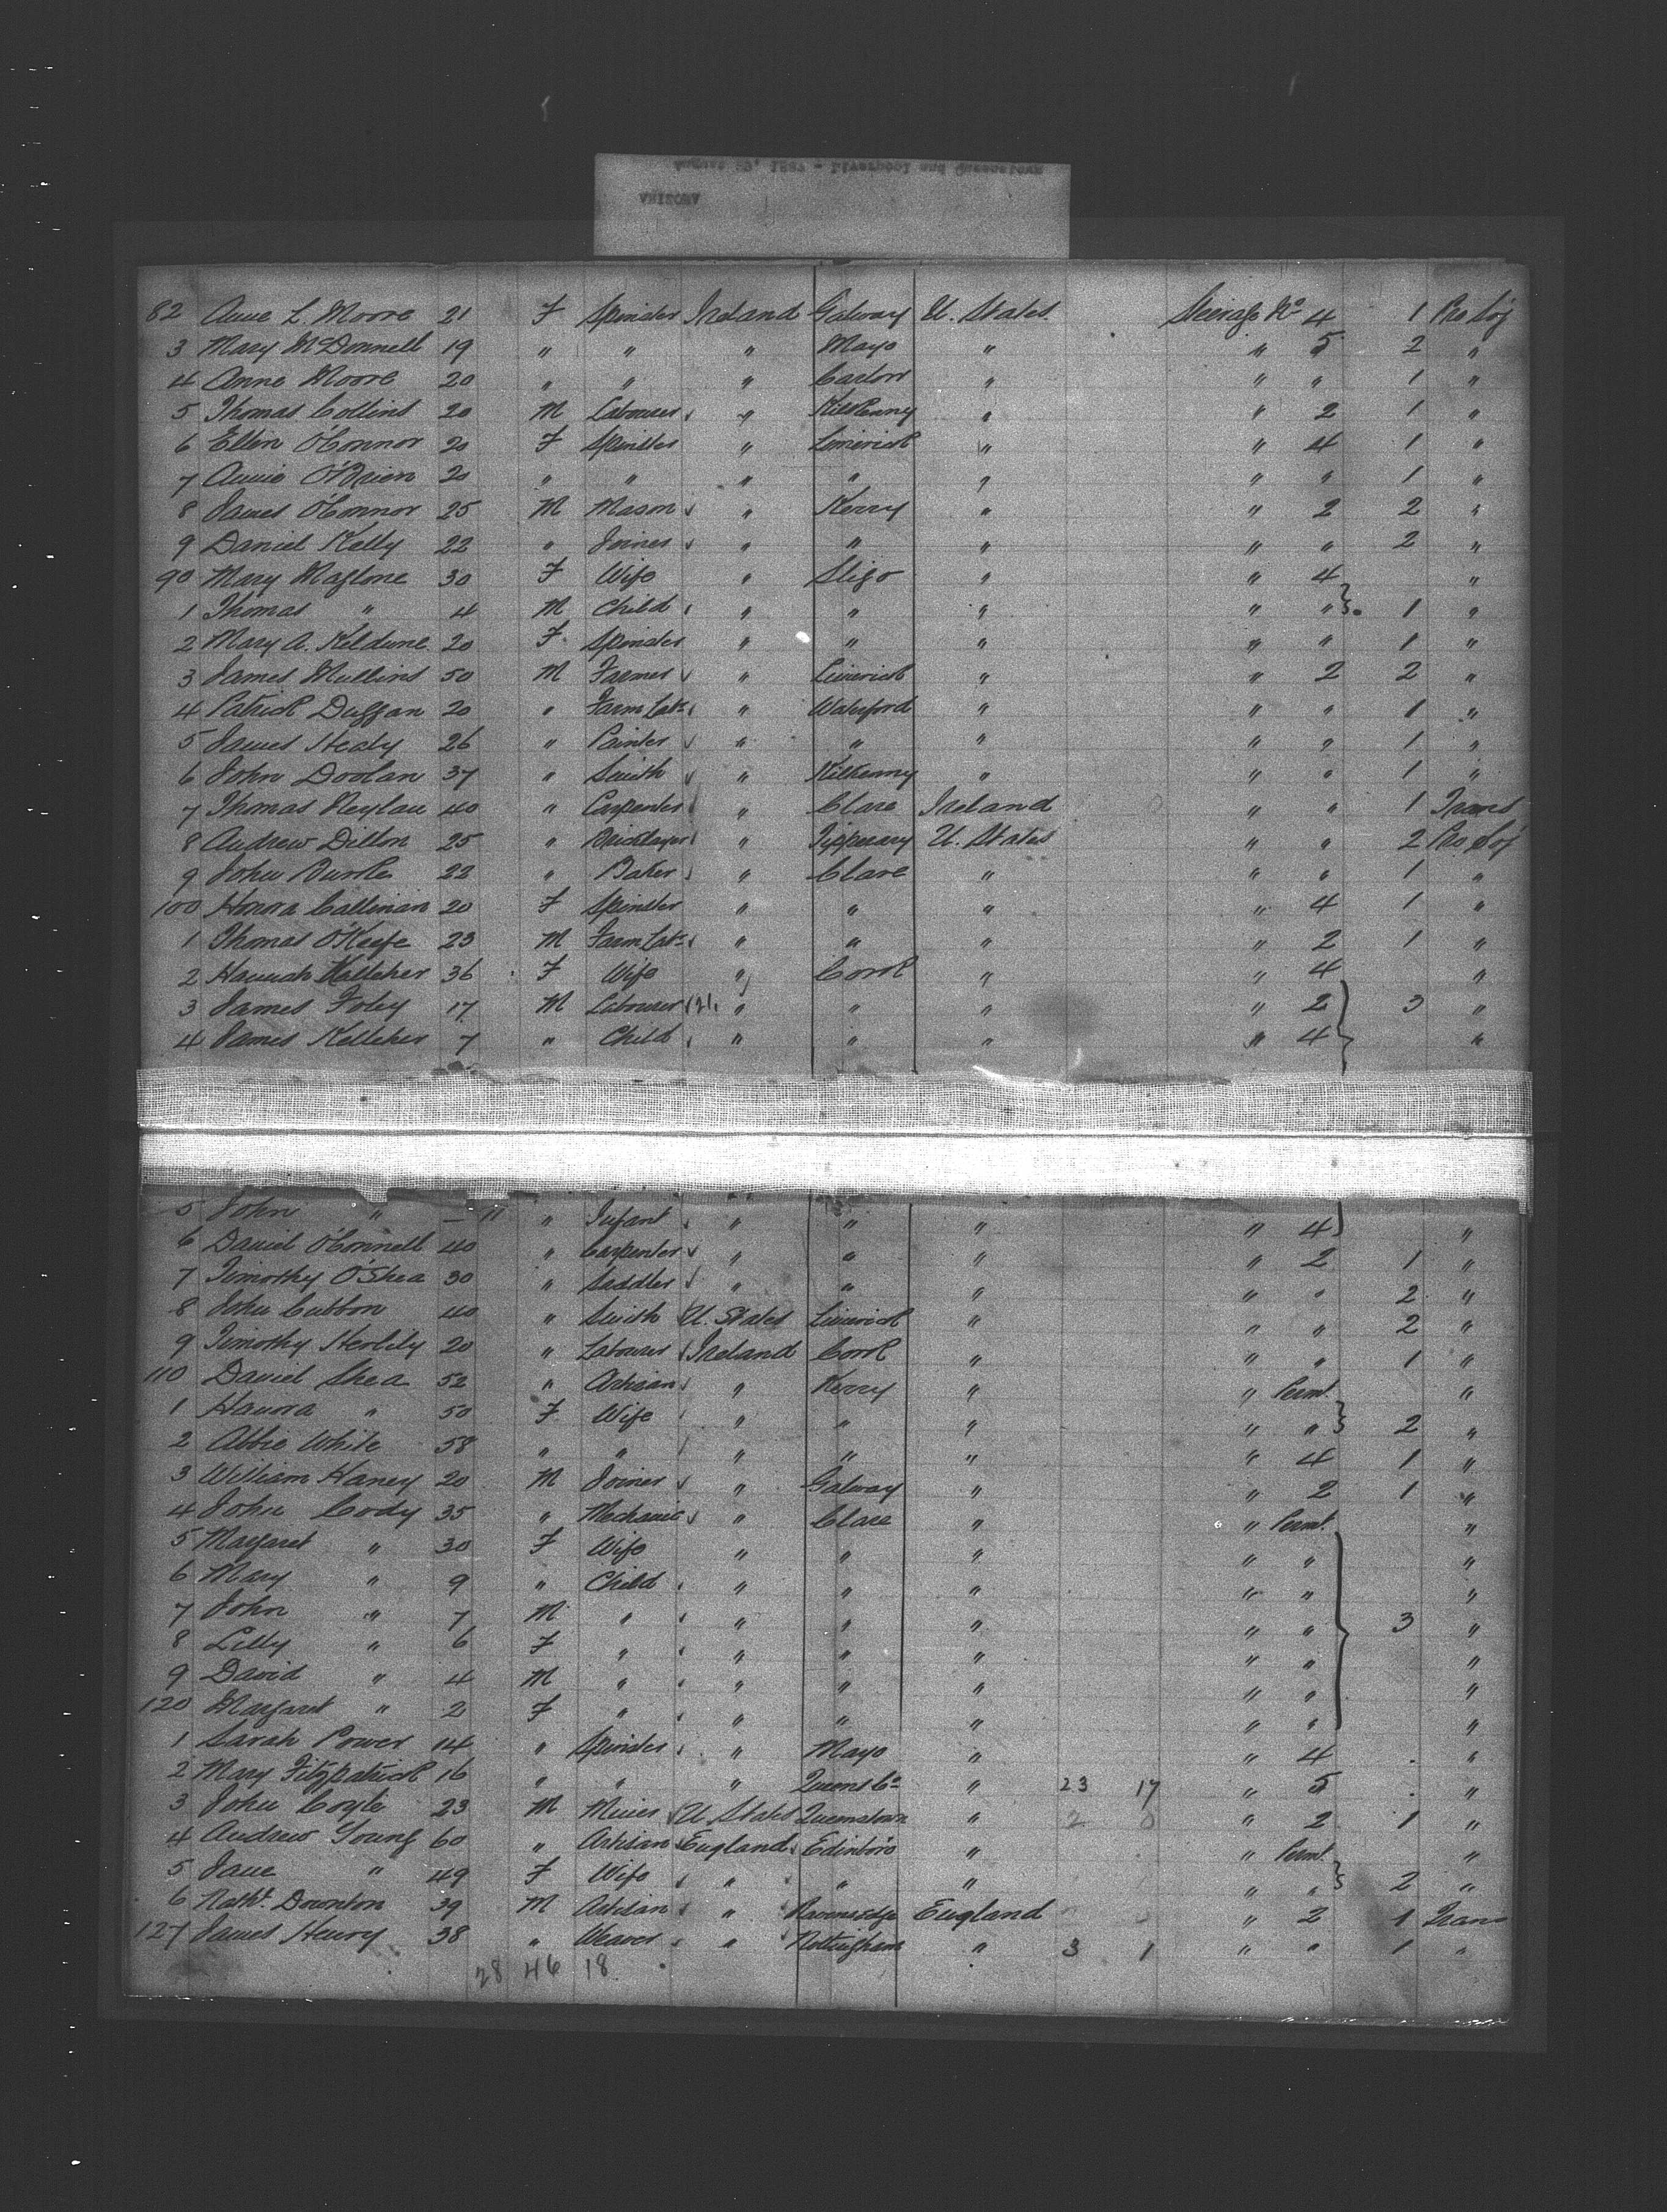 ARIZONA
August 29, 1887 - Liverpool and Queenstown
82 Anne L. Moore 21 F Spinster Ireland Galway U. States Steerage No 4 1 Pro Soj
3 Mary McDonnell 19 " " " Mayo " " 5 2 "
4 Anne Moore 20 " " " Carlow " " " 1 "
5 Thomas Collins 20 M Labourer " Kilkenny " " 2 1 "
6 Ellen O'Connor 20 F Spinster " Limerick " " 4 1 "
7 Annie O'Brien 20 " " " " " " " 1 "
8 James O'Connor 25 M Mason " Kerry " " 2 2 "
9 Daniel Kelly 22 " Joiner " " " " " 2 "
90 Mary Maglone 30 F Wife " Sligo " " 4 "
1 Thomas " 4 M Child " " " " " 1 "
2 Mary A. Keldune 20 F Spinster " " " " " 1 "
3 James Mullins 50 M Farmer " Limerick " " 2 2 "
4 Patrick Duggan 20 " Farm Labr " Waterford " " " 1 "
5 James Healy 26 " Painter " " " " " 1 "
6 John Doolan 37 " Smith " Kilkenny " " " 1 "
7 Thomas Neylan 40 " Carpenter " Clare Ireland " " 1 Trans
8 Andrew Dillon 25 " Bricklayer " Tipperary U. States " " 2 Pro Soj
9 John Burke 22 " Baker " Clare " " " 1 "
100 Honora Callinan 20 F Spinster " " " " 4 1 "
1 Thomas O'Keefe 23 M Farm Labr " " " " 2 1 "
2 Hannah Kelleher 36 F Wife " Cork " " 4 "
3 James Foley 17 M Labourer (21) " " " " 2 3 "
4 James Kelleher 7 " Child " " " " 4 "
5 John " - 11 " Infant " " " " 4 "
6 Daniel O'Connell 40 " Carpenter " " " " 2 1 "
7 Timothy O'Shea 30 " Saddler " " " " " 2 "
8 John Cubbon 40 " Smith U. States Limerick " " " 2 "
9 Timothy Herlily 20 " Labourer Ireland Cork " " " 1 "
110 David Shea 52 " Artisan " Kerry " " Permt. "
1 Hanora " 50 F Wife " " " " " 2 "
2 Abbie White 58 " " " " " " 4 1 "
3 William Haney 20 M Joiner " Galway " " 2 1 "
4 John Cody 35 " Mechanic " Clare " " Permt. "
5 Margaret " 30 F Wife " " " " " "
6 Mary " 9 " Child " " " " " "
7 John " 7 M " " " " " " 3 "
8 Lilly " 6 F " " " " " " "
9 David " 4 M " " " " " " "
120 Margaret " 2 F " " " " " " "
1 Sarah Power 14 " Spinster " Mayo " " 4 . "
2 Mary Fitzpatrick 16 " " " Queens Co " 23 17 " 5 . "
3 John Coyle 23 M Miner U. States Queenstown " 2 0 " 2 1 "
4 Andrew Young 60 " Artisan England Edinboro " " Permt. "
5 Jane " 49 F Wife " " " " " 2 "
6 Nathl. Downton 39 M Artisan " England " 2 1 Trans
127 James Henry 38 " Weaver " Nottingham " 3 1 " " 1 "
28 46 18